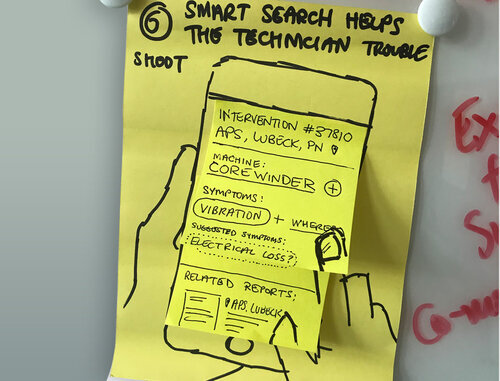 6 SMART SEARCH HELPS
THE TECHNICIAN TROUBLE
SHOOT
INTERVENTION #37810
APS, LUBECK, PN
MACHINE:
COREWINDER +
SYMPTOMS:
VIBRATION + WHERE
SUGGESTED SYMPTOMS:
ELECTRICAL LOSS?
RELATED REPORTS:
APS, LUBECK